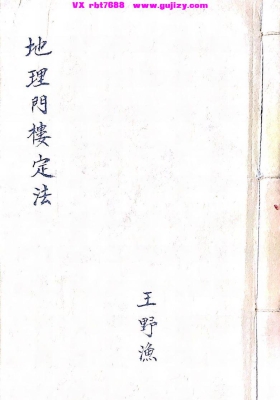 VX rbt7688  www.gujizy.com
地理門樓定法
王野漁